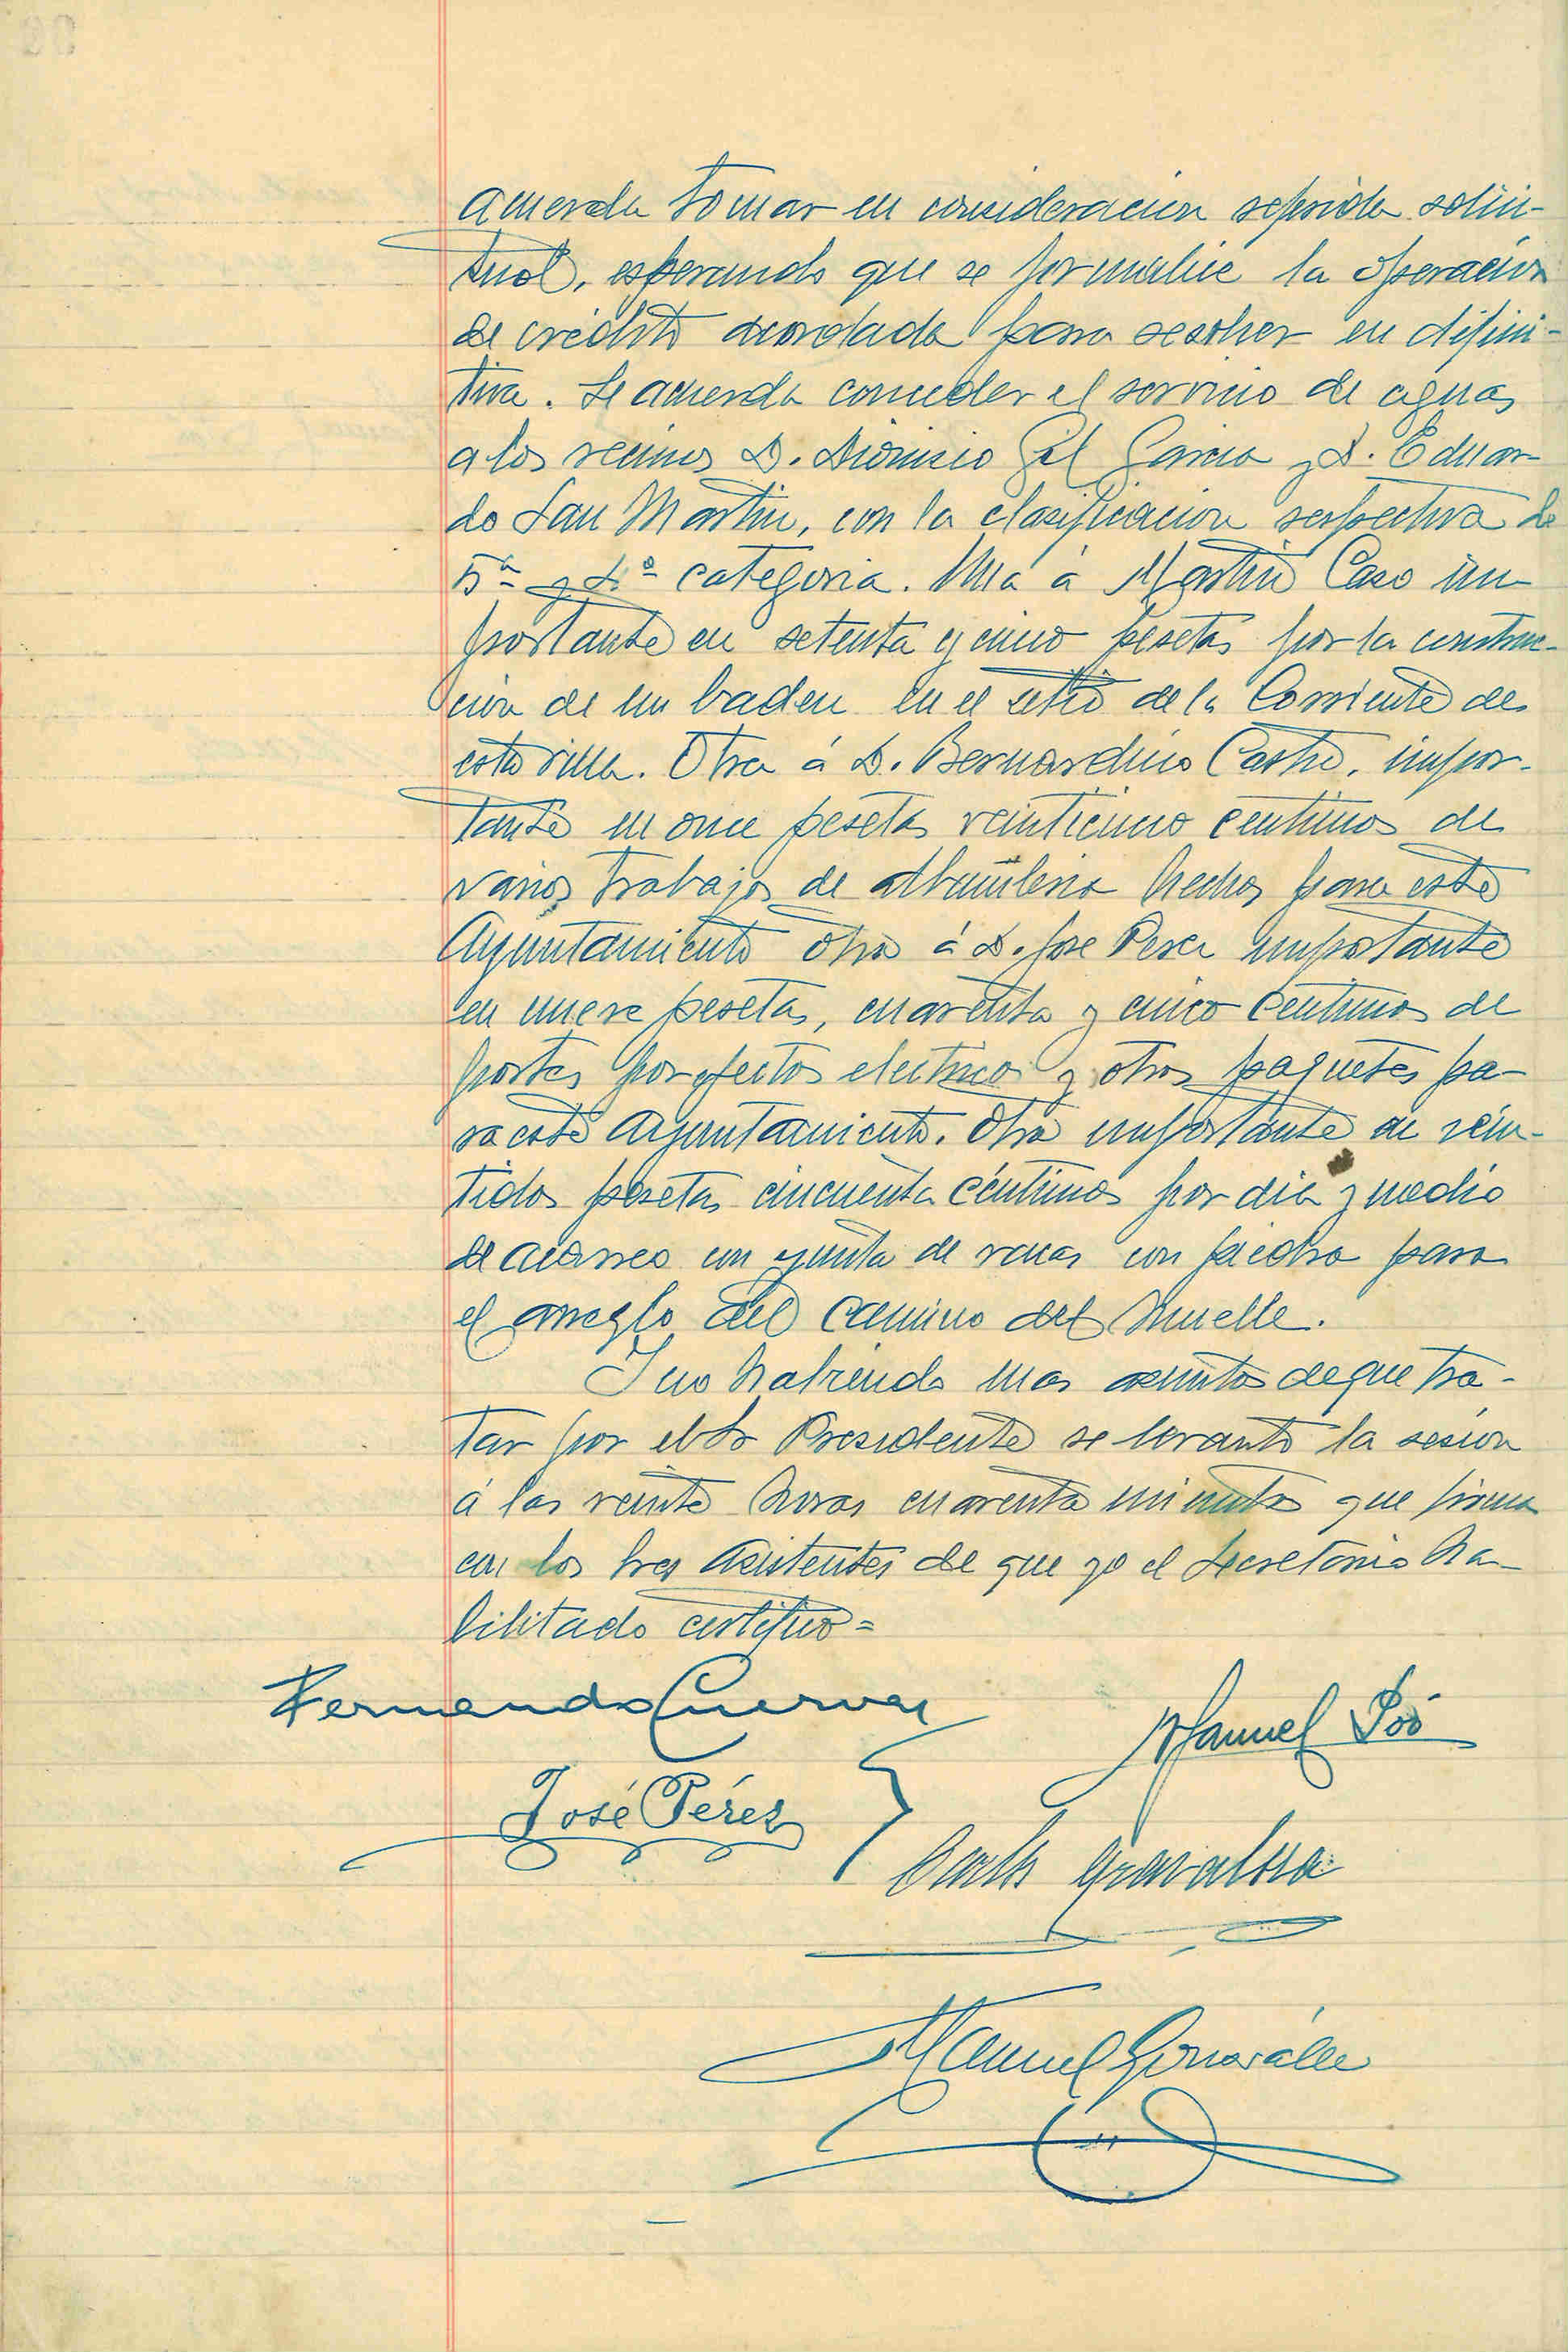 acuerda tomar en consideracion referida solici-
tud, esperando que se formalice la operación
de crédito acordada para resolver en difini-
tiva. Se acuerda conceder el servicio de aguas
a los vecinos D. Dionisio Gil Garcia y D. Eduar-
do San Martin, con la clasificacion respectiva de
5ª y 4ª categoria. Una á Martin Caso im-
portante en setenta y cinco pesetas por la construc-
ción de un baden en el sitio de la Corriente de
esta villa. Otra á D. Bernardino Castro, impor-
tante en once pesetas veinticinco centimos de
varios trabajos de albañileria hechos para este
Ayuntamiento otra á D. Jose Perez importante
en nueve pesetas, cuarenta y cinco centimos de
portes por efectos electricos y otros paquetes pa-
ra este Ayuntamiento. Otra importante en vein-
tidos pesetas cincuenta céntimos por dia y medio
de acarreo con yunta de vacas con piedra para
el arreglo del camino del Muelle.
Y no habiendo mas asuntos de que tra-
tar por el Sr Presidente se levantó la sesión
á las veinte horas cuarenta minutos que firma
con los tres asistentes de que yo el Secretario ha-
bilitado certifico=
Fernando Cuervas
Manuel Poó
José Pérez
Manuel González